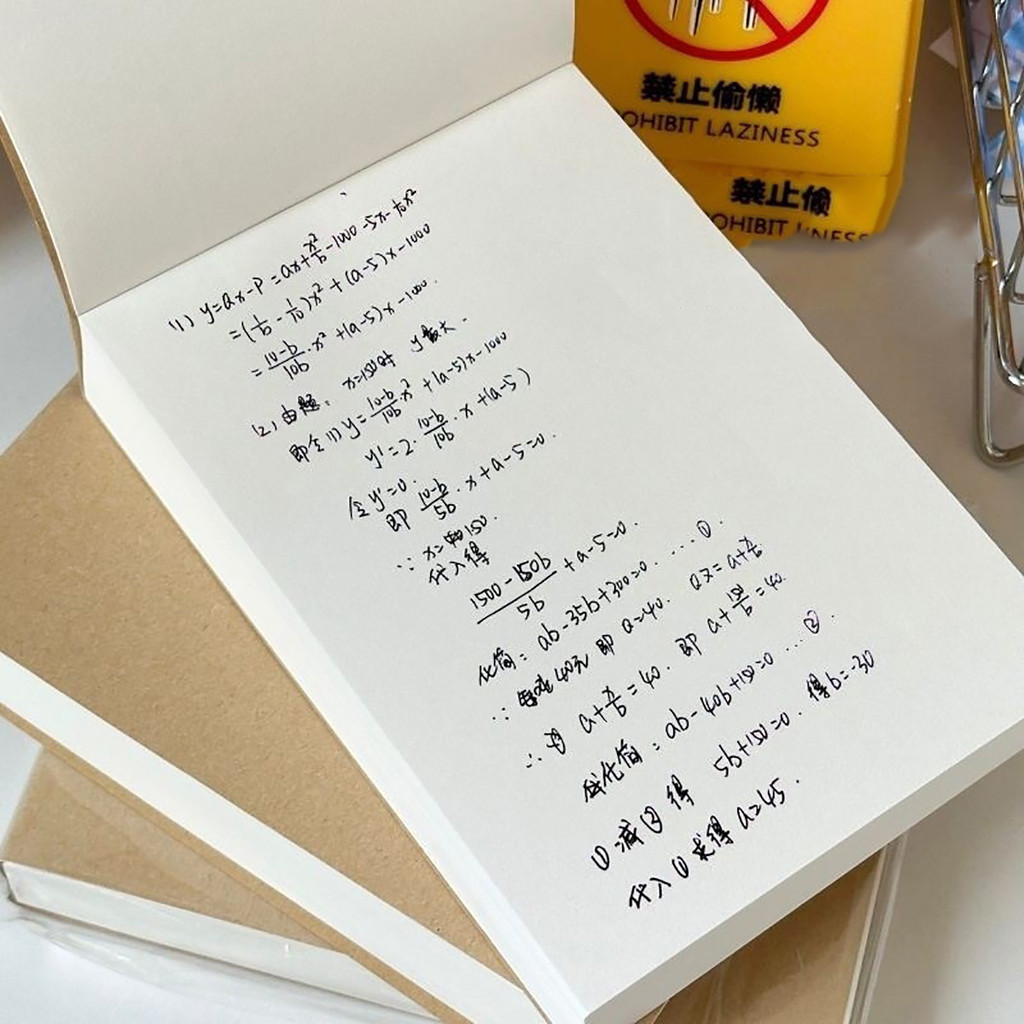 禁止偷懒
OHIBIT LAZINESS
禁止偷
OHIBIT
NESS
(1) y=ax-P=ax+x²/b-1000-5x-1/10x²
=(1/b-1/10)x²+(a-5)x-1000
=10-b/10b·x²+(a-5)x-1000.
(2)由题：x=150时 y最大.
即令(1)y=10-b/10b x²+(a-5)x-1000
y'=2·10-b/10b·x+(a-5)
令y'=0.
即 10-b/5b·x+a-5=0.
∵x=150.
代入得
1500-150b/5b+a-5=0.
化简：ab-35b+300=0. ...①
∵ 40元 即 a=40. a+x/b
∴ a+x/b=40. 即 a+150/b=40.
化简：ab-40b+150=0 ...②.
①减②得 5b+150=0. 得b=-30
代入①求得 a=45.